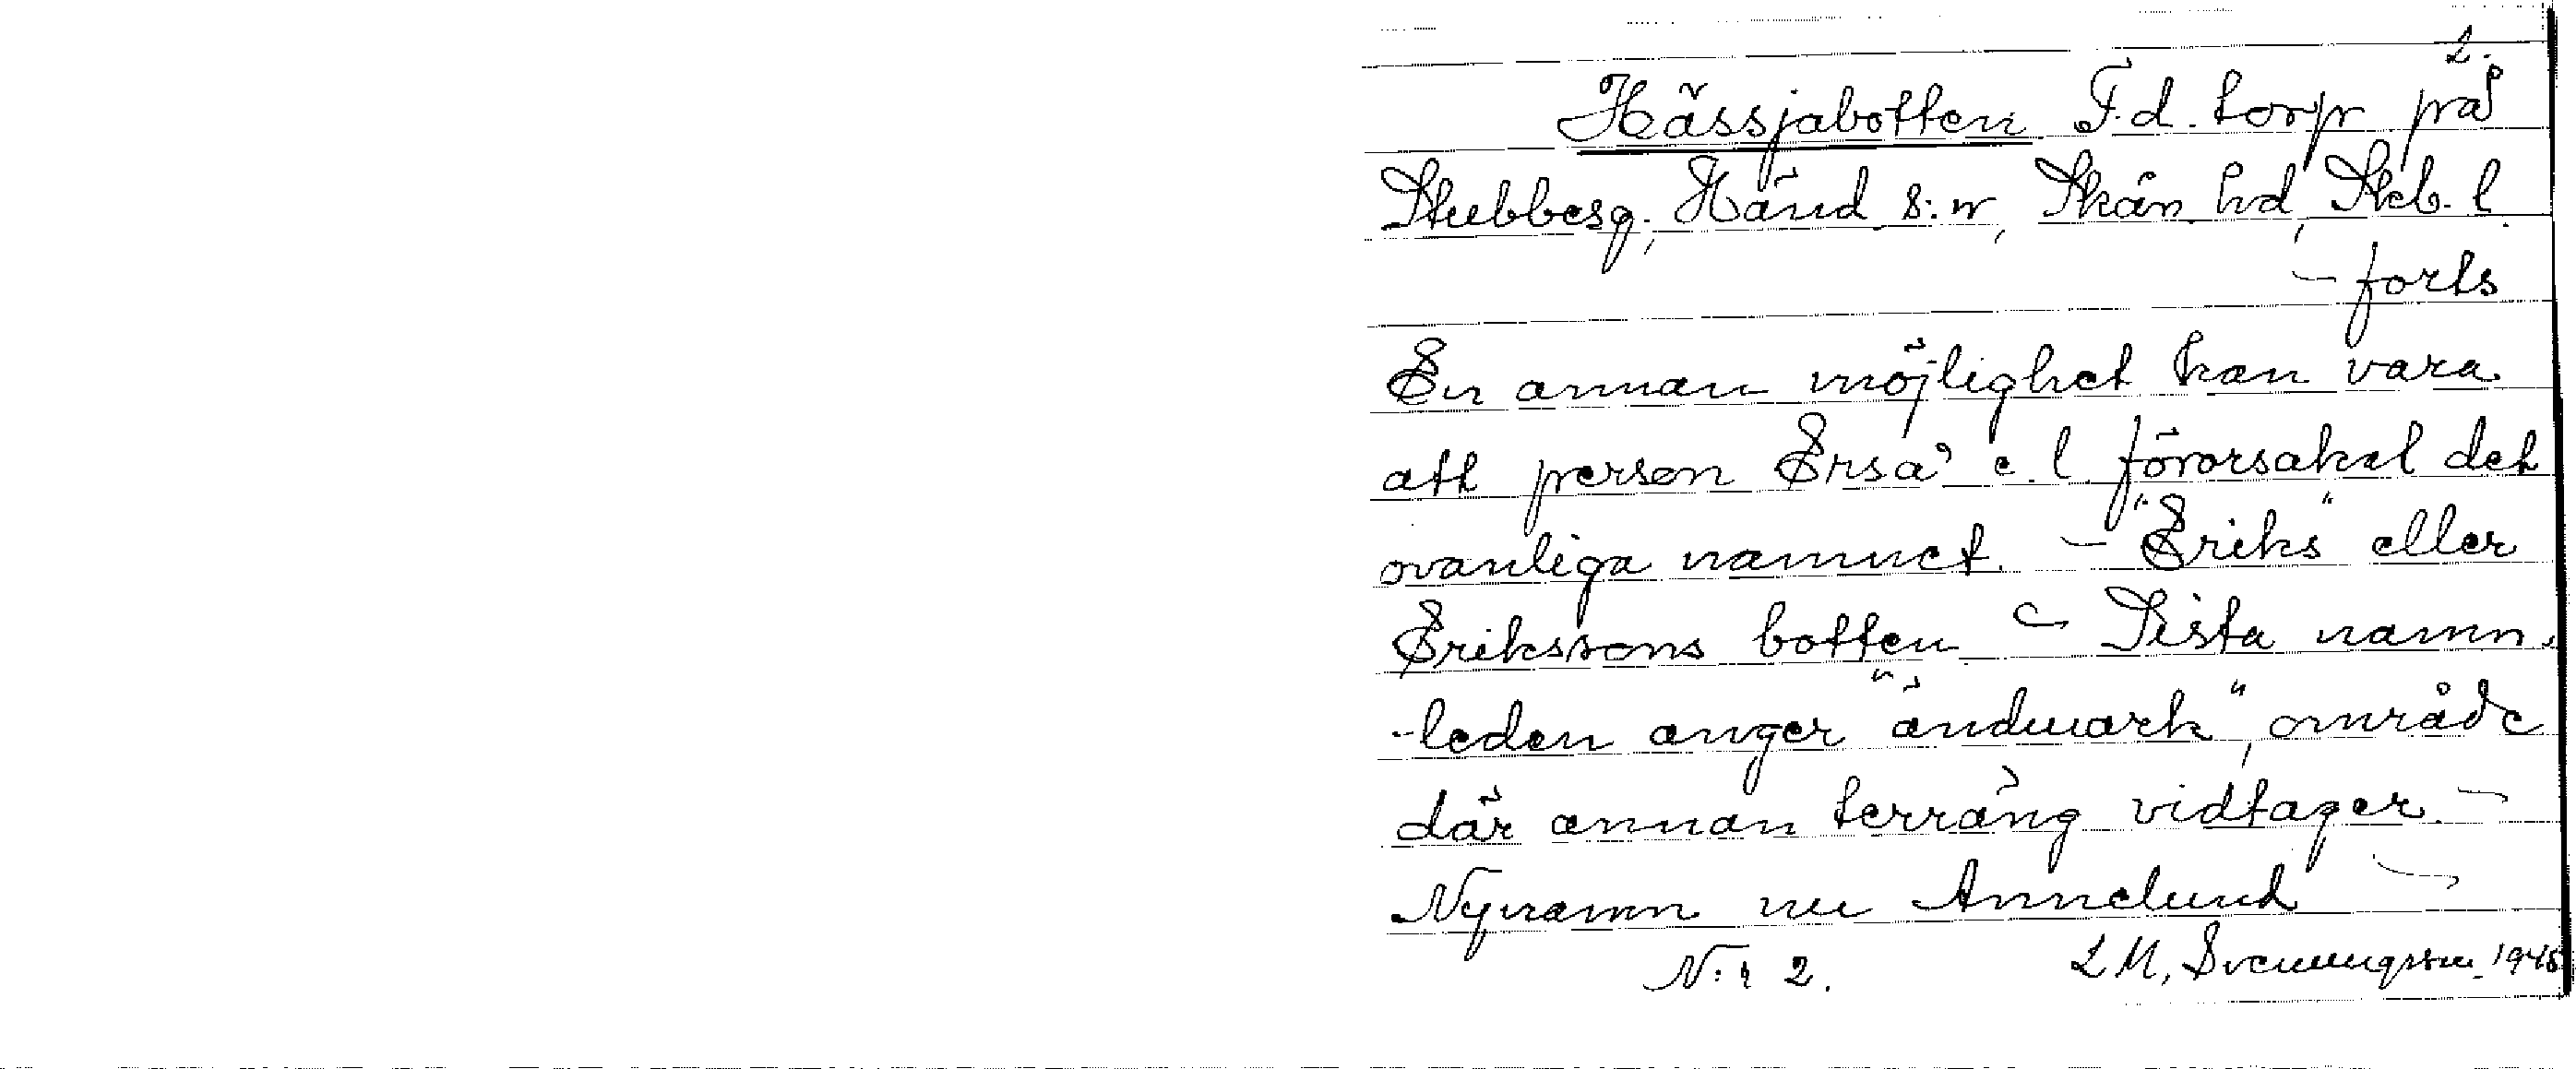 2.
Hässjabotten F.d. torp på
Stubbesg., Händ s:n, Skån. hd, Skb. l.
- forts
En annan möjlighet kan vara
att person Ersa' e.l. förorsakat det
ovanliga namnet. - "Eriks" eller
Erikssons botten - Sista namn-
-leden anger "ändmark", område
där annan terräng vidtager. -
Nynamn nu Annelund -
N:r 2. L M, Svenungsson 1945